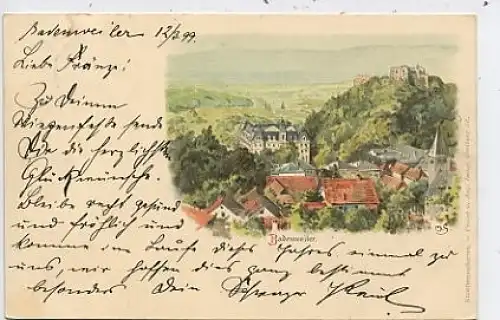 Badenweiler 12/3 99.
Liebe Fränze!
Zu Deinem
Wiegenfeste sende
Dir die herzlichsten
Glückwünsche.
Bleibe recht gesund
und fröhlich und
komme im Laufe dieses Jahres einmal zu
uns, wir hoffen dies ganz bestimmt
besonders Dein Schwager Paul
Badenweiler.